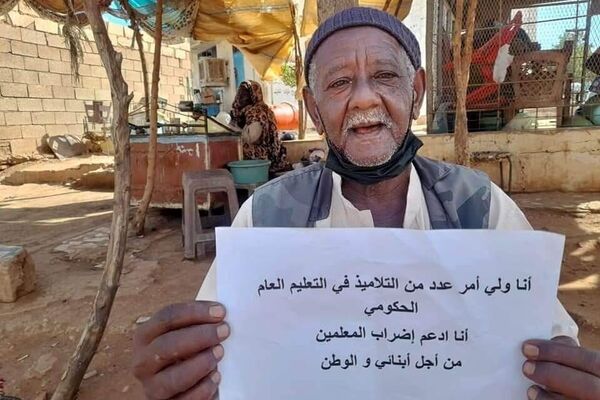 أنا ولي أمر عدد من التلاميذ في التعليم العام
الحكومي
أنا ادعم إضراب المعلمين
من أجل أبنائي و الوطن